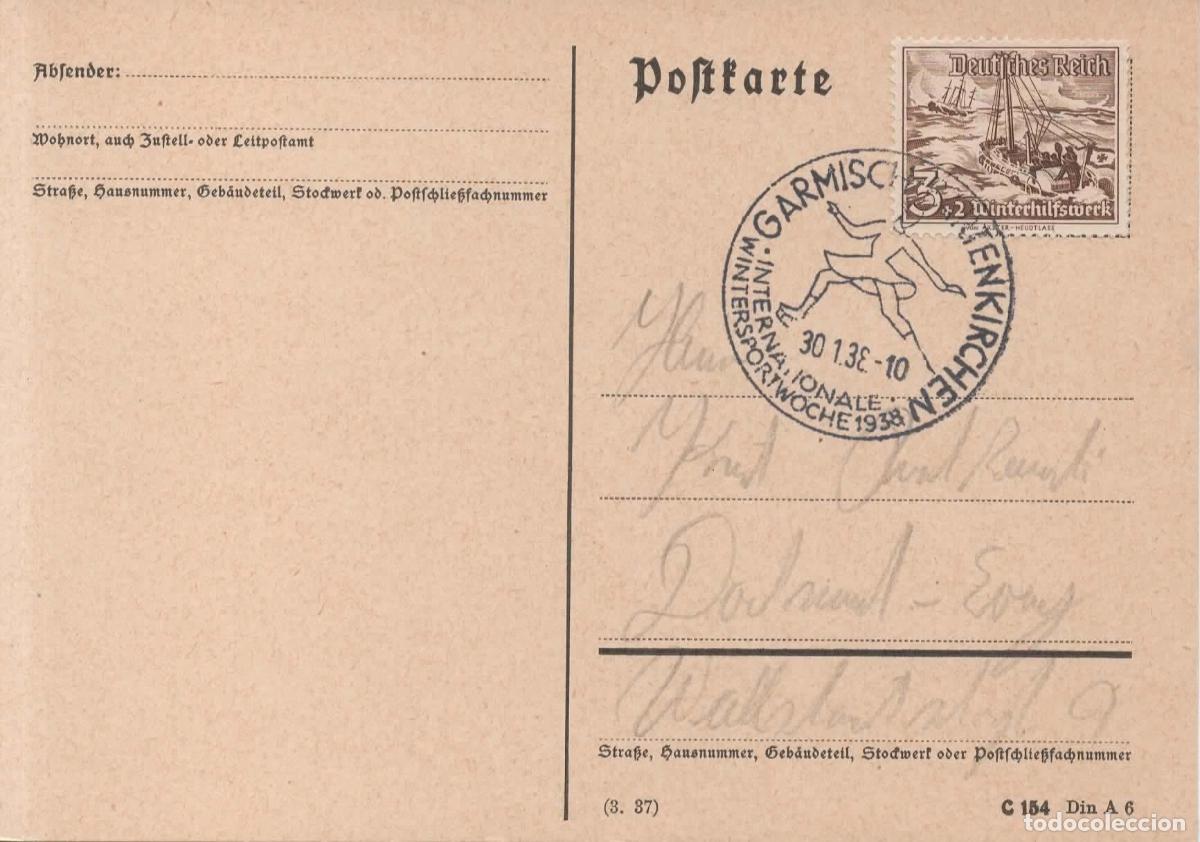 Absender:
Wohnort, auch Zustell- oder Leitpostamt
Straße, Hausnummer, Gebäudeteil, Stockwerk od. Postschließfachnummer
Postkarte
Deutsches Reich
3+2 Winterhilfswerk
GARMISCH-PARTENKIRCHEN
30.1.38.-10
· INTERNATIONALE ·
WINTERSPORTWOCHE 1938
Dortmund - Eving
9
Straße, Hausnummer, Gebäudeteil, Stockwerk oder Postschließfachnummer
(3. 37)
C 154 Din A 6
todocoleccion